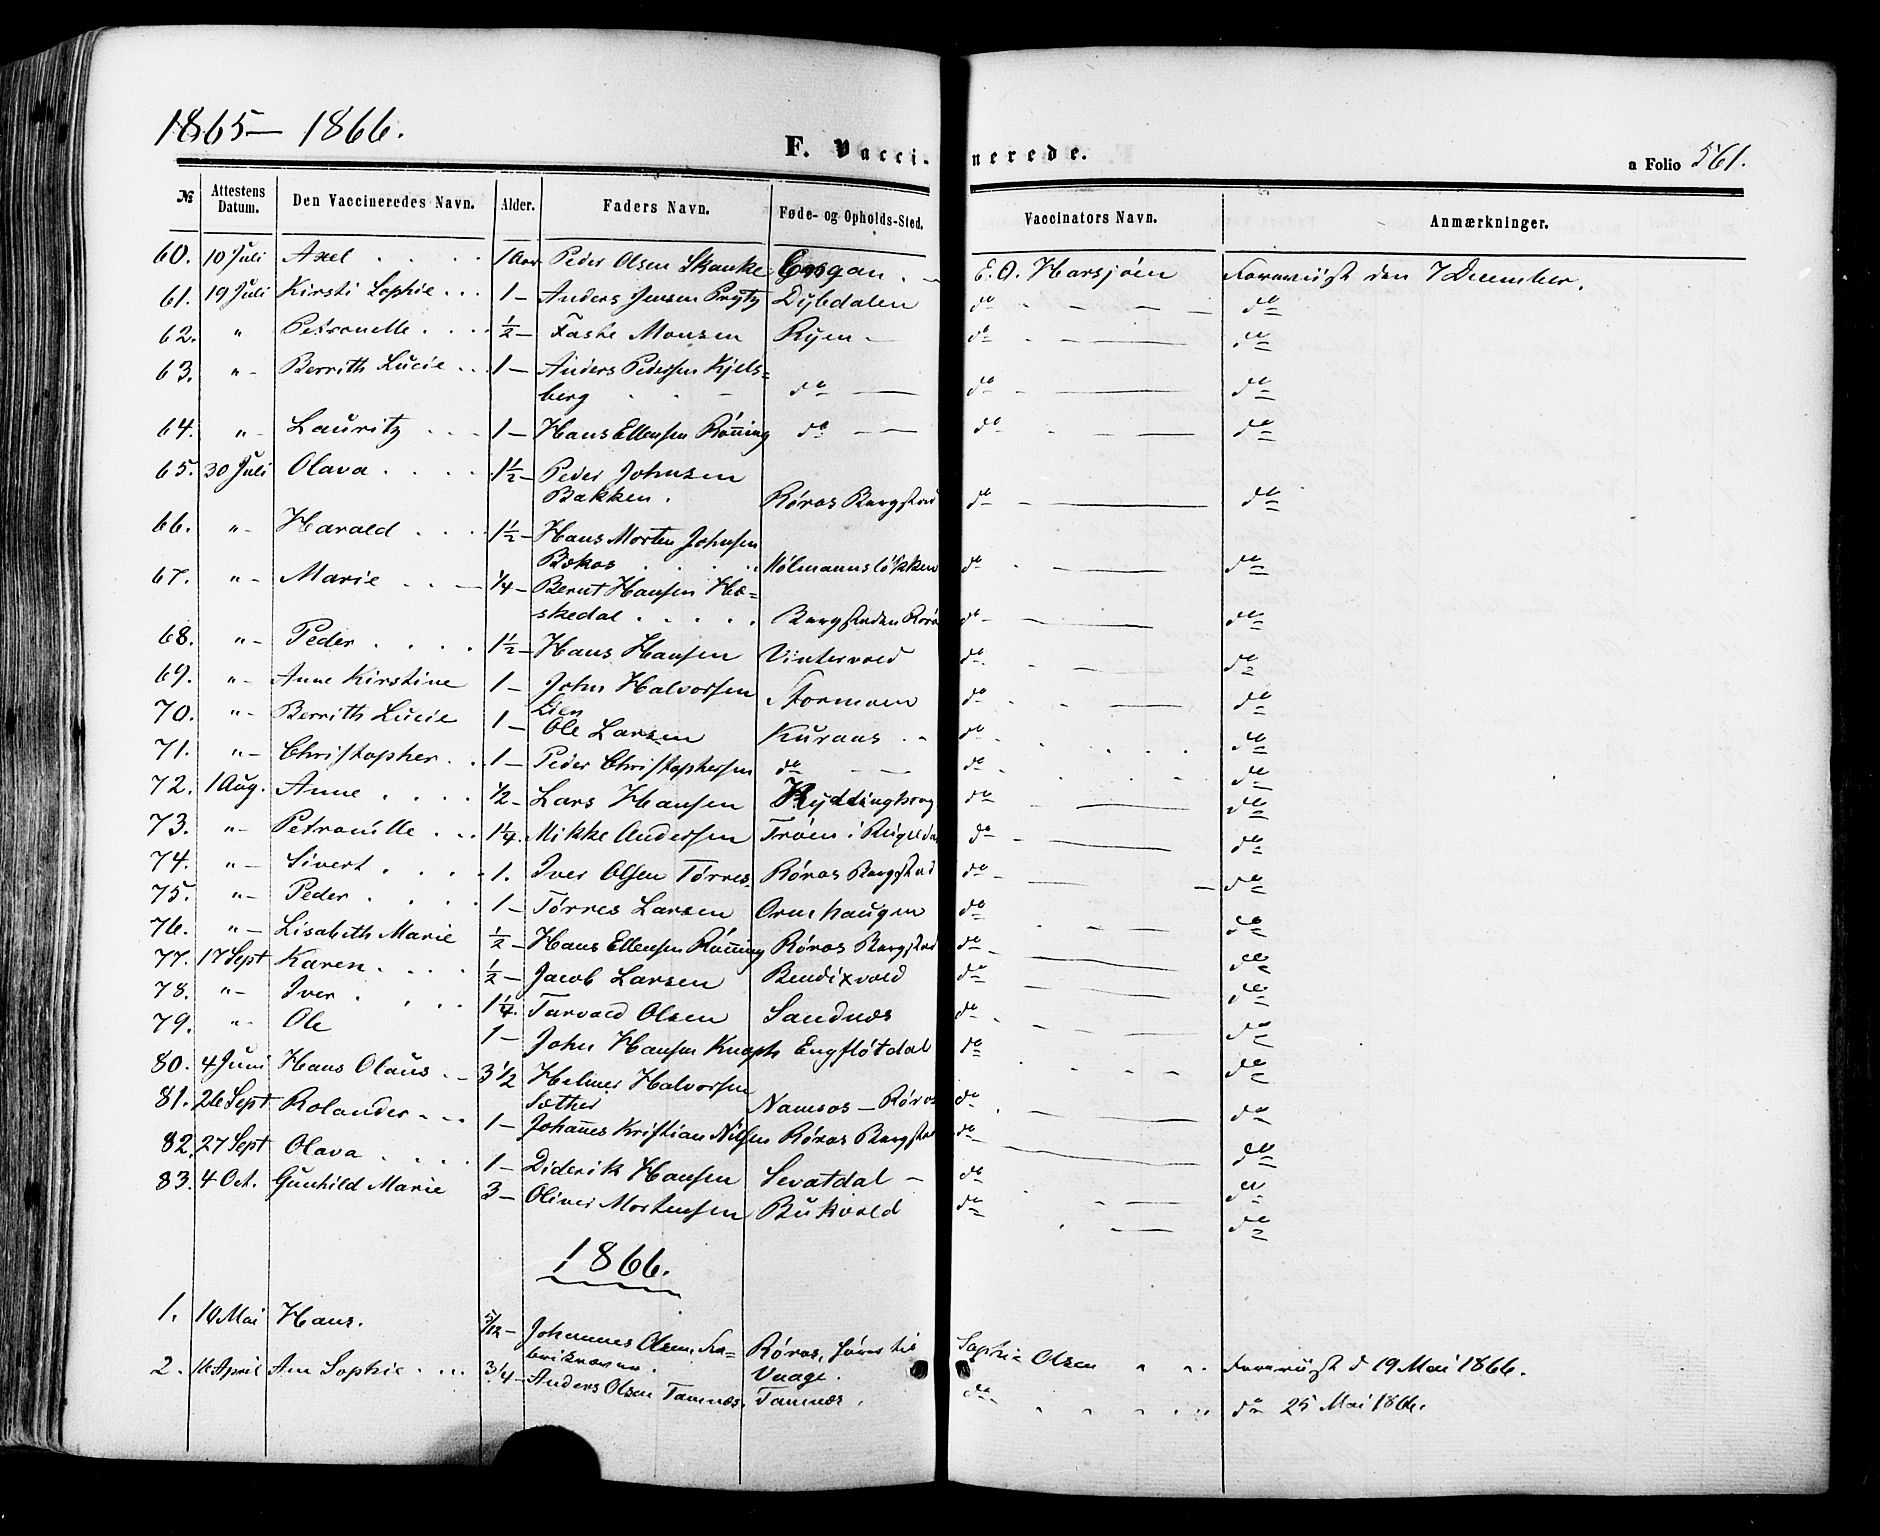 1865 — 1866.
F. Vaccinerede.
a Folio 561.
№ Attestens Datum. Den Vaccineredes Navn. Alder. Faders Navn. Føde- og Opholds-Sted. Vaccinators Navn. Anmærkninger.
60. 10 Juli Axel . . . . 1 Aar Peder Olsen Skanke E. O. Harsjøen Forevüist den 7 December.
61. 19 Juli Kirsti Sophie . . . 1 — Anders Jensen Prytz Dybdalen do — — — do
62. " Petronelle . . . . ½ — Faste Monsen Ryen — do — do
63. " - Berrith Lucie . . 1 — Anders Pedersen Kjels=
berg . . — do — do — do
64. " - Lauritz . . . 1 — Hans Ellensen Rönning do — do — do
65. 30 Juli Olava . . . . 1½ — Peder Johnsen
Bakken . Røros Bergstad do — do
66. " - Harald . . . 1½ — Hans Morten Johnsen
Bekos . . . . Kølmannsløkken do — do
67. " - Marie . . — ¼ — Bernt Hansen Hæ=
skedal . . . . . Bergstaden Røro do — do
68. " - Peder . . . . 1½ — Hans Hansen Vintervold do — do
69. " - Anne Kirstine 1 — John Halvorsen
Lien Stormoen do — do
70. " - Berrith Lucie 1 — Ole Larsen Kuraas . . do — do
71. " - Christopher . . 1 — Peder Christophersen do — do — do
72. 1 Aug. Anne . . . . ½ — Lars Hansen Ryddinghaug do — do
73. " - Petronille . . . 1¼. Mikke Andersen Trøen i Rugeldal do — do
74. " - Sivert . . . . 1. Iver Olsen Tørres Røros Bergstad do — do
75. " - Peder . . . . 1 — Tørres Larsen Ormhaugen do — do
76. " - Lisabeth Marie ½ — Hans Ellensen Rönning Røros Bergstad do — do
77. 17 Sept Karen . . . . ½ — Jacob Larsen Bendixvold do — do
78. " - Iver . . . . 1¼. Tarvald Olsen Sandnæs do — do
79. " - Ole 1 — John Hansen Knoph Engfløtdal do — do
80. 4 Juni Hans Olaus . — 3½ Helmer Halvorsen
Sæther Namsos — Røros do — do
81. 26 Sept Rolander . . . 1 — Johannes Kristian Nilsen Røros Bergstad do — do
82. 27 Sept Olava . . . . 1 — Diderik Hansen Sevatdal — do — do
83. 4 Oct. Gunhild Marie 3 — Oliver Mortensen Bukvold do — do
1866.
1. 19 Mai Hans. 5/12 — Johannes Olsen Fa=
briksvæver . Røros, hører til
Vaage. Sophie Olsen " " Forevüist d 19 Mai 1866.
2. 16 April Ane Sophie . . . 3/4 — Anders Olsen Tamnæs. Tamnæs. do " " " do 25 Mai 1866.